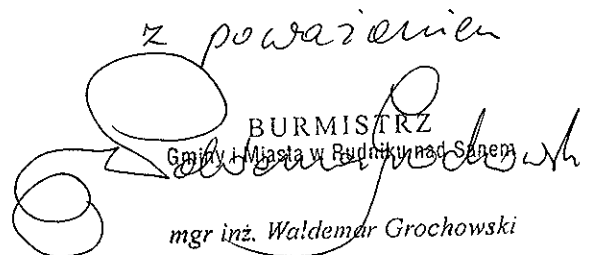 z poważaniem
BURMISTRZ
Gminy i Miasta w Rudniku nad Sanem
mgr inż. Waldemar Grochowski